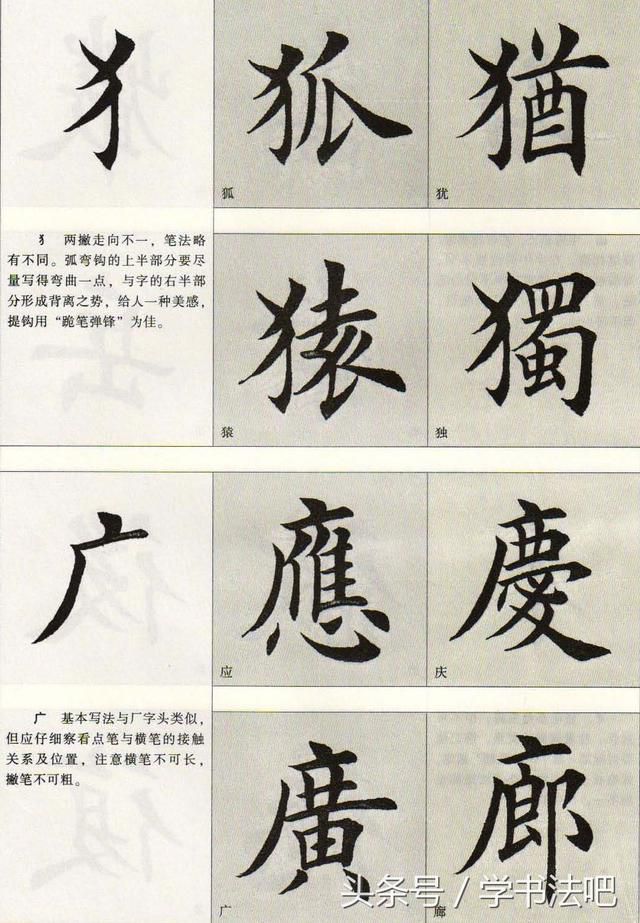 犭
狐
猶
狐
犹
犭 两撇走向不一，笔法略
有不同。弧弯钩的上半部分要尽
量写得弯曲一点，与字的右半部
分形成背离之势，给人一种美感，
提钩用“跪笔弹锋”为佳。
猿
獨
猿
独
广
應
慶
应
庆
广 基本写法与厂字头类似，
但应仔细察看点笔与横笔的接触
关系及位置，注意横笔不可长，
撇笔不可粗。
廣
廊
广
廊
头条号／学书法吧